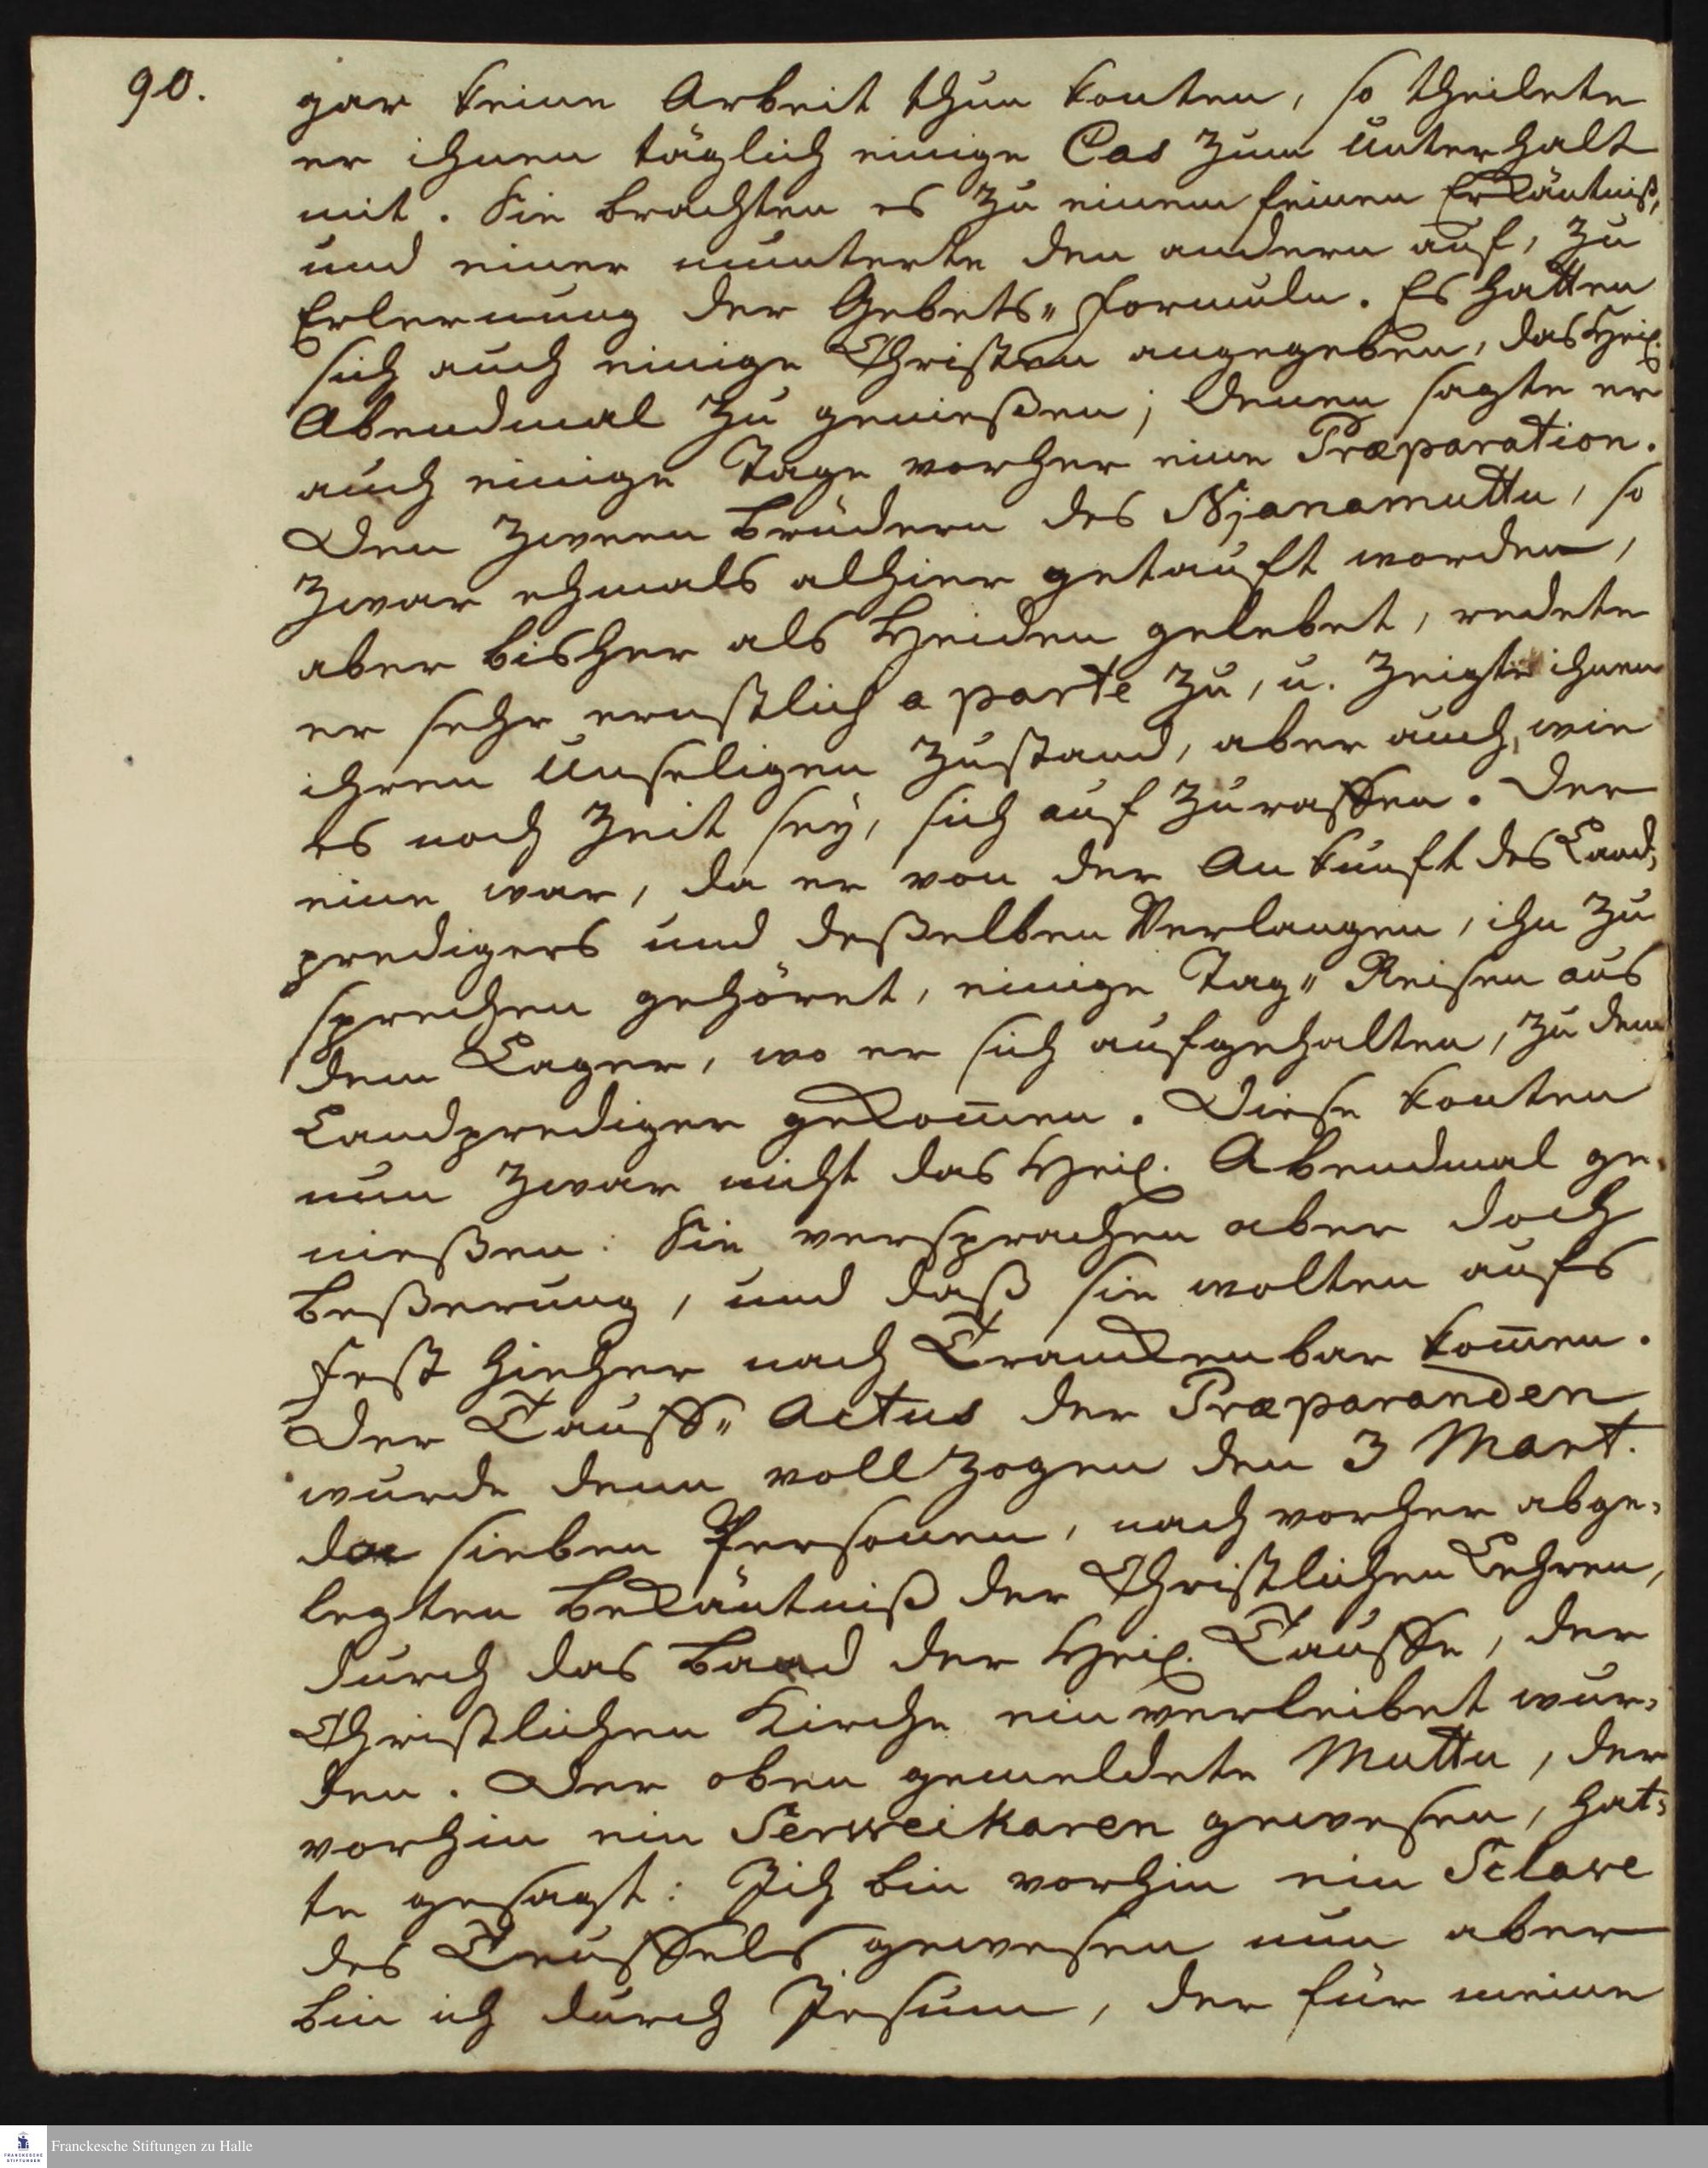 90.
gar keine Arbeit thun konten, so theilete
er ihnen täglich einige Cas zum Unterhalt
mit. Sie brachten es zu einem feinen Erkäntniß,
und einer munterte den andern auf, zu
Erlernung der Gebets-Formuln. Es hatten
sich auch einige Christen angegeben, das Heil.
Abendmal zu genießen; denen sagte er
auch einige Tage vorher eine Præparation.
Den zween Brüdern des Njanamuttu, so
zwar ehmals alhier getauft worden,
aber bisher als Heiden gelebet, redete
er sehr ernstlich a parte zu, u. zeigte ihnen
ihren Unseligen Zustand, aber auch, wie
es noch Zeit sey, sich auf zuraffen. Der
eine war, da er von der Ankunft des Land-
predigers und deßelben Verlangen, ihn zu
sprechen gehöret, einige Tag-Reisen aus
dem Lager, wo er sich aufgehalten, zu dem
Landprediger gekom̅en. Diese konten
nun zwar nicht das Heil. Abendmal ge-
nießen: Sie versprachen aber doch
Beßerung, und daß sie wolten aufs
Fest hieher nach Trankenbar kom̅en.
Der Tauff-Actus der Præparanden
wurde denn voll zogen den 3 Mart.
da sieben Personen, nach vorher abge-
legten Bekäntniß der Christlichen Lehren,
durch das Baad der Heil. Tauffe, der
Christlichen Kirche einverleibet wur-
den. Der oben gemeldete Muttu, der
vorhin ein Serweikaren gewesen, hat-
te gesagt: Ich bin vorhin ein Sclave
des Teuffels gewesen nun aber
bin ich durch Jesum, der für meine
Franckesche Stiftungen zu Halle